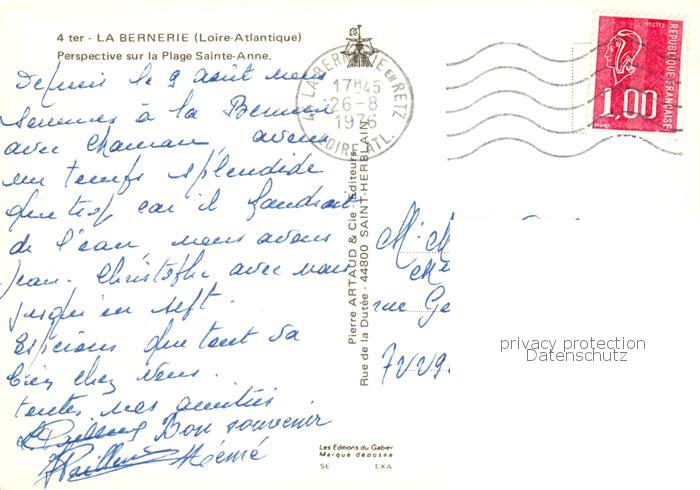 4 ter - LA BERNERIE (Loire-Atlantique)
Perspective sur la Plage Sainte-Anne.
Depuis le 9 août nous
sommes à la Bernerie
avec Maman, avons
un temps splendide
que trop car il faudrait
de l'eau, nous avons
Jean-Christophe avec nous
jusqu'en sept.
Espérons que tout va
bien chez vous.
toutes nos amitiés
Bon souvenir
44 LA BERNERIE EN RETZ
17H45
26-8
1976
LOIRE ATL.
Pierre ARTAUD & Cie - Editeurs
Rue de la Dutée - 44800 SAINT-HERBLAIN
POSTES
REPUBLIQUE FRANÇAISE
1,00
rue
privacy protection
Datenschutz
Les Editions du Gabier
Marque déposée
SE EXA